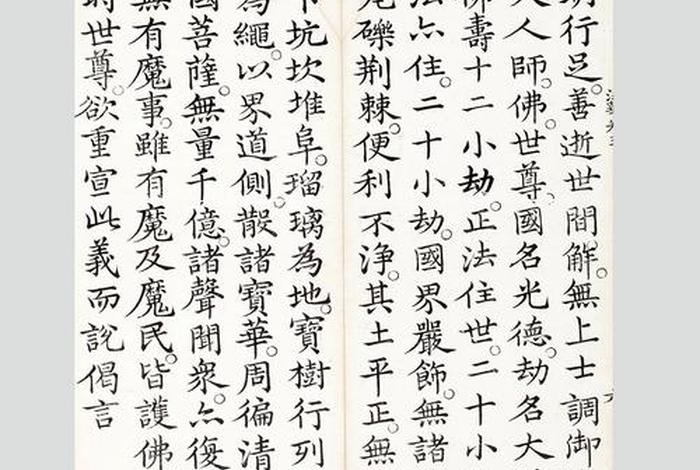 行足。善逝世間解。無上士調御
人師。佛。世尊。國名光德。劫名大
佛壽十二小劫。正法住世。二十小
法亦住。二十小劫。國界嚴飾。無諸
礫荊棘。便利不淨。其土平正。無
下坑坎堆阜。瑠璃為地。寶樹行列
為繩。以界道側。散諸寶華。周徧清
國菩薩。無量千億。諸聲聞衆。亦復
無有魔事。雖有魔及魔民。皆護佛
時世尊。欲重宣此義而說偈言